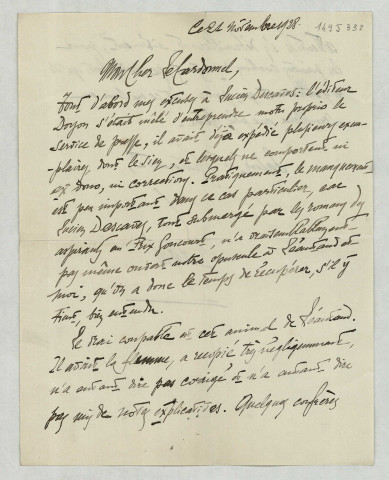 Ce 21 Novembre 1928.
1495 338
Mon Cher Le Cardonnel,
Tout d'abord mes excuses à Lucien Descaves : l'éditeur
Doyon s'était mêlé d'entreprendre motu proprio le
service de presse, il avait déjà expédié plusieurs exem-
plaires dont le sien, et lesquels ne comportent ni
ex dono, ni correction. Pratiquement, le manquement
est peu important dans ce cas particulier, car
Lucien Descaves, tout submergé par les romans des
aspirants au Prix Goncourt, n'a vraisemblablement
pas même ouvert notre opuscule à Léautaud et
moi, qu'on a donc le temps de récupérer, s'il y
tient, bien entendu.
Le vrai coupable est cet animal de Léautaud.
Il avait la flemme, a recopié très négligemment,
n'a autant dire pas corrigé et n'a autant dire
pas mis de notes explicatives. Quelques confrères